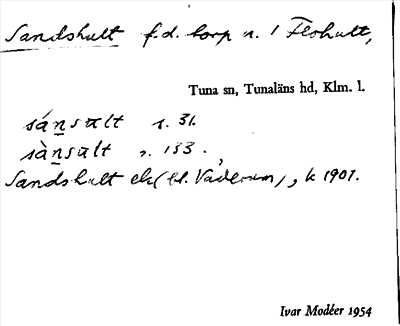 Sandshult f.d. torp u. 1 Flohult,
Tuna sn, Tunaläns hd, Klm. l.
sánsult s. 31.
sànsult s. 133.
Sandshult ek (bl. ), k 1901.
Ivar Modéer 1954